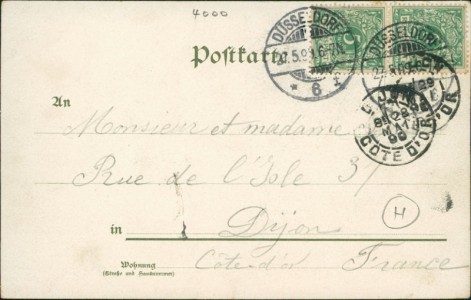 4000
Postkarte
DÜSSELDORF
5
DÜSSELDORF
* 6 f
DIJON
29
MAI
99
COTE D'OR
An
Monsieur et madame
Rue de l'Isle 37
H
in Dijon
Wohnung
(Straße und Hausnummer)
Côte-d'or France